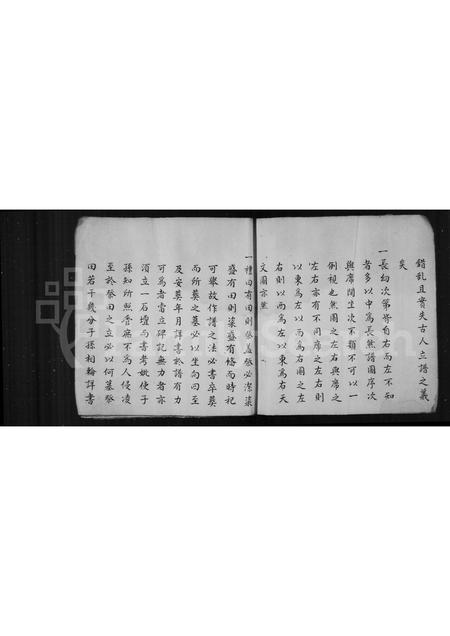 錯乱且實失古人立譜之義
矣
一長幼次第皆自右而左不知
者多以中為長無譜圖序次
與席間坐次不類不可以一
例視也無圖之左右與席之
左右亦有不同席之左右則
以東為左以西為右圖之左
右則以西為左以東為右天
文圖亦然
一禮田有田則祭盖祭必潔粢
盛有田則粢盛有俻而時祀
可舉故作譜之法必書卒葬
而所葬之墓必以坐向曰至
及安葬年月詳書於譜有力
可為者當立碑記無力者亦
須立一石壇焉書考妣使子
孫知所照管庶不為人侵凌
至於祭田之立必以何墓祭
田若干幾分子孫相輪詳書